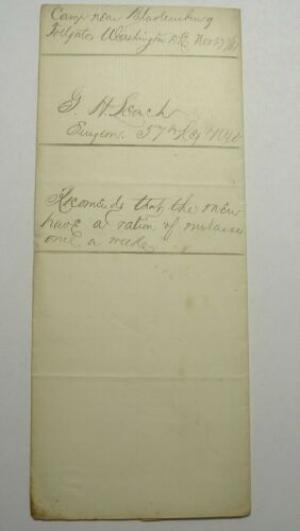 Camp near Bladensburg
Tollgates Washington D.C. Nov 27/61
G. H. Leach
Surgeon 57th Regt
Recomends that the men
have a ration of molasses
once a week